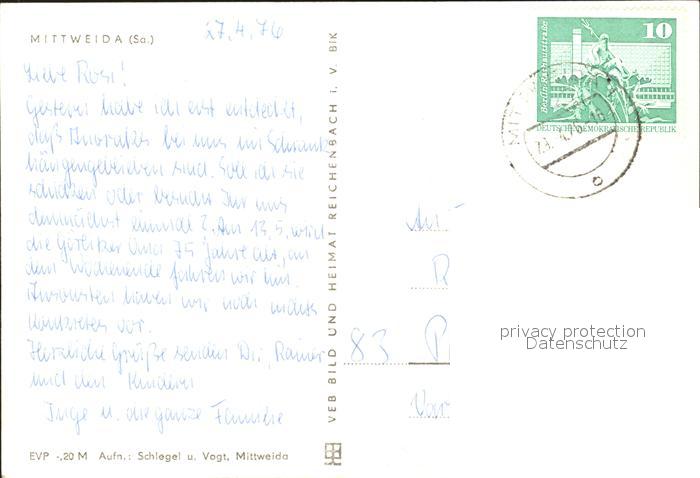 MITTWEIDA (Sa.)
27.4.76
Liebe Rosi!
Gestern habe ich erst entdeckt,
daß bei uns im Schrank
hängengeblieben sind. Soll ich sie
schicken oder besucht Ihr uns
demnächst einmal? Am 13.5. wird
die Görlitzer Oma 75 Jahre alt, an
dem Wochenende fahren wir hin.
Ansonsten haben wir noch nichts
konkretes vor.
Herzliche Grüße senden Dir, Rainer
und den Kindern
Inge u. die ganze Familie
EVP -,20 M Aufn.: Schlegel u. Vogt, Mittweida
VEB BILD UND HEIMAT REICHENBACH i. V. BIK
10
Berlin: Rathausstraße
DEUTSCHE DEMOKRATISCHE REPUBLIK
83 P
privacy protection
Datenschutz